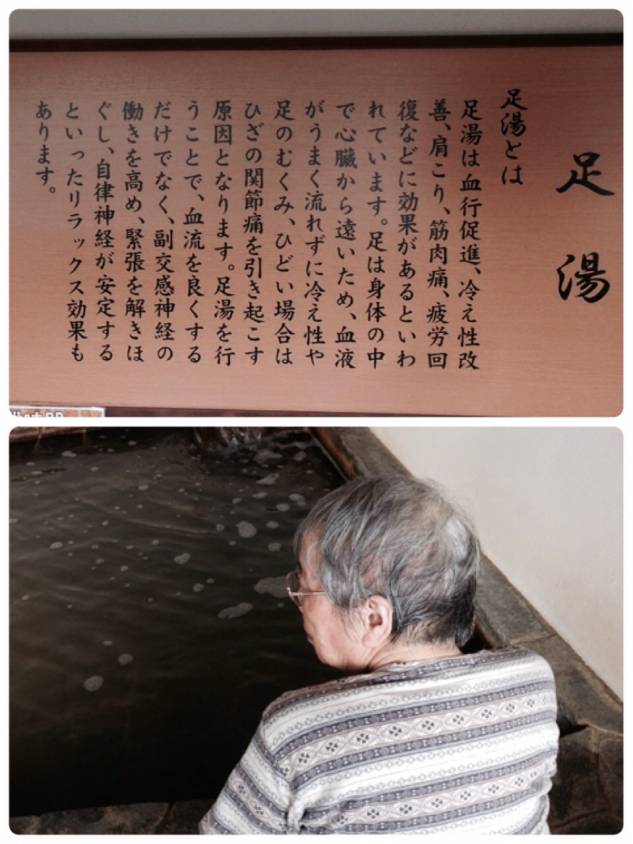 足湯
足湯とは
足湯は血行促進、冷え性改
善、肩こり、筋肉痛、疲労回
復などに効果があるといわ
れています。足は身体の中
で心臓から遠いため、血液
がうまく流れずに冷え性や
足のむくみ、ひどい場合は
ひざの関節痛を引き起こす
原因となります。足湯を行
うことで、血流を良くする
だけでなく、副交感神経の
働きを高め、緊張を解きほ
ぐし、自律神経が安定する
といったリラックス効果も
あります。